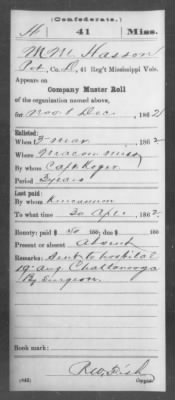 (Confederate.)
H 41 Miss.
M M Hasson
Pvt, Co. D, 41 Reg't Mississippi Vols.
Appears on
Company Muster Roll
of the organization named above,
for Nov & Dec, 1862
Enlisted:
When 3 Mar, 1862
Where Macon Miss
By whom Capt Roger
Period 3 years
Last paid:
By whom
To what time 30 Apl, 1862
Bounty: paid $ 50 100; due $ 100
Present or absent Absent
Remarks: Sent to hospital
19 Aug Chattanooga
By surgeon.
Book mark:
(642)
Copyist.